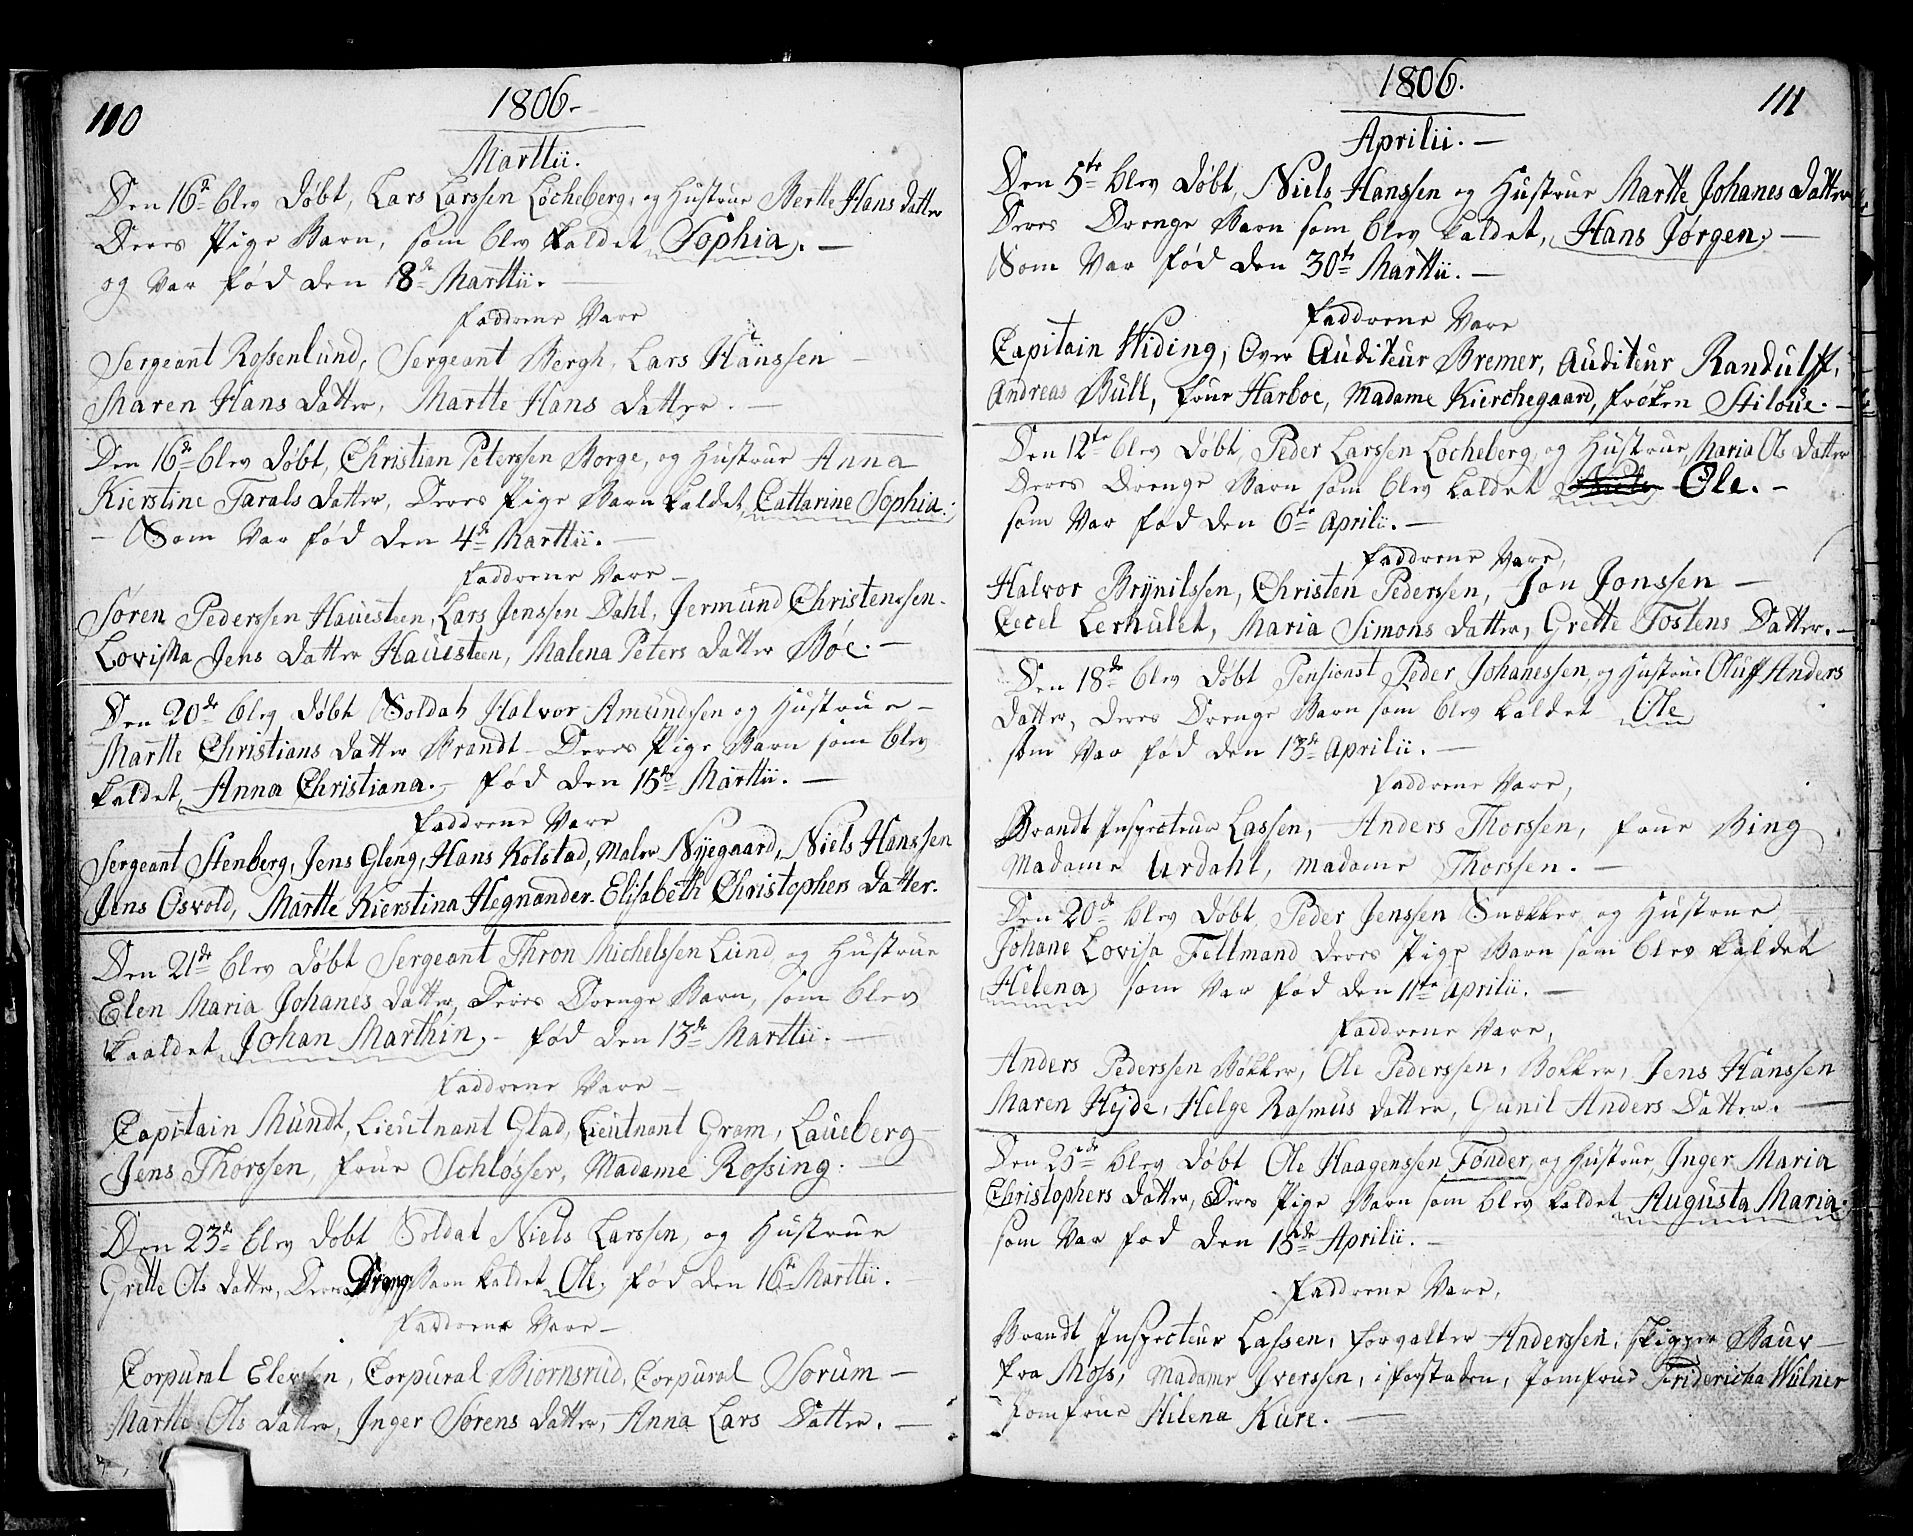 110
1806.
Marttii.
Den 16de blev døbt, Lars Larssen Løcheberg, og Hustrue Bertte Hans datter
Deres Pige Barn, som blev kaldet, Sophia. —
og var fød den 18de Marttii. —
Faddrene Vare
Sergeant Rossenlund, Sergeant Bergh, Lars Hanssen —
Maren Hans datter, Martte Hans datter. —
Den 16de blev døbt, Christian Peterssen Borge, og Hustrue Anna
Kierstine Tarals datter, Deres Pige Barn kaldet, Cattarine Sophia.
— Som var fød den 4de Marttii. —
Faddrene Vare —
Søren Pederssen Hauesteen, Lars Jenssen Dahl, Jermund Christenssen.
Lovissa Jens datter Hauesteen, Malena Peters datter Bøe. —
Den 20de blev døbt Soldat Halvor Amundssen og Hustrue —
Martte Christians datter Brandt — Deres Pige Barn som blev
kaldet, Anna Christiana. — fød den 15de Marttii. —
Faddrene Vare
Sergeant Stenberg, Jens Gleng, Hans Kolstad, Maler Nyegaard, Niels Hanssen
Jens Osvold, Martte Kierstina Hegnander. Elisabeth Christophers datter.
Den 21de blev døbt Sergeant Thron Michelssen Lund, og Hustrue
Elen Maria Johanes datter, Deres Drenge Barn, som blev
kaaldet, Johan Marthin, — fød den 13de Marttii. —
Faddrene Vare —
Capitain Mundt, Lieutnant Glad, Lieutnant Gram, Laueberg
Jens Thorssen, frue Schløsser, Madame Rossing. —
Den 23de blev døbt Soldat Niels Larssen, og Hustrue
Grette Ols datter, Deres Dreng Barn kaldet Ole, fød den 16de Marttii.
Faddrene Vare —
Corpural Elevssen, Corpural Biornsrud, Corpural Sorum —
Martte Ols datter, Inger Sørens datter, Anna Lars Datter. —
1806.
111
Aprilii. —
Den 5te blev døbt, Niels Hanssen og Hustrue Martte Johanes datter
Deres Drenge Barn som blev kaldet, Hans Jørgen, —
Som var fød den 30te Marttii. —
Faddrene Vare
Capitain Widing, Over Auditeur Bremer, Auditeur Randulff,
Andreas Bull, frue Harboe, Madame Kierchegaard, frøken Stiloue. —
Den 12te blev døbt, Peder Larssen Locheberg, og Hustrue, Maria Ols datter
Deres Drenge Barn som blev kaldet Ole. —
som var fød den 6te Aprilii. —
Faddrene Vare,
Halvor Brynilssen, Christen Pederssen, Jon Jonssen —
Cecel Lerhulet, Maria Simons datter, Grette Tostens Datter. —
Den 18de blev døbt Pensionist Peder Johanessen, og Hustrue Oluff Anders
datter, Deres Drenge Barn som blev kaldet Ole
som var fød den 13de Aprilii. —
Faddrene Vare,
Brandt Inspecteur Lassen, Anders Thorssen, frue Ring
Madame Urdahl, Madame Thorssen. —
Den 20de blev døbt, Peder Jenssen Snækker og Hustrue
Johane Lovisa Fellmand deres Pige Barn som blev kaldet
Helena, som var fød den 11te Aprilii. —
Faddrene Vare,
Anders Pederssen Bøkker, Ole Pederssen, Bokker, Jens Hanssen
Maren Hyde, Helge Rasmus datter, Gunil Anders Datter. —
Den 25de blev døbt Ole Haagenssen Tonder, og Hustrue, Inger Maria
Christophers datter, Deres Pige Barn som blev kaldet Augusta Maria.
som var fød den 15de Aprilii. —
Faddrene Vare,
Brandt Inspecteur Lassen, Forvalter Anderssen, skipper Baur —
fra Moss, Madame Iverssen, i forstaden, Jomfrue Fridericha Wulner
Jomfrue Hilena Kure. —